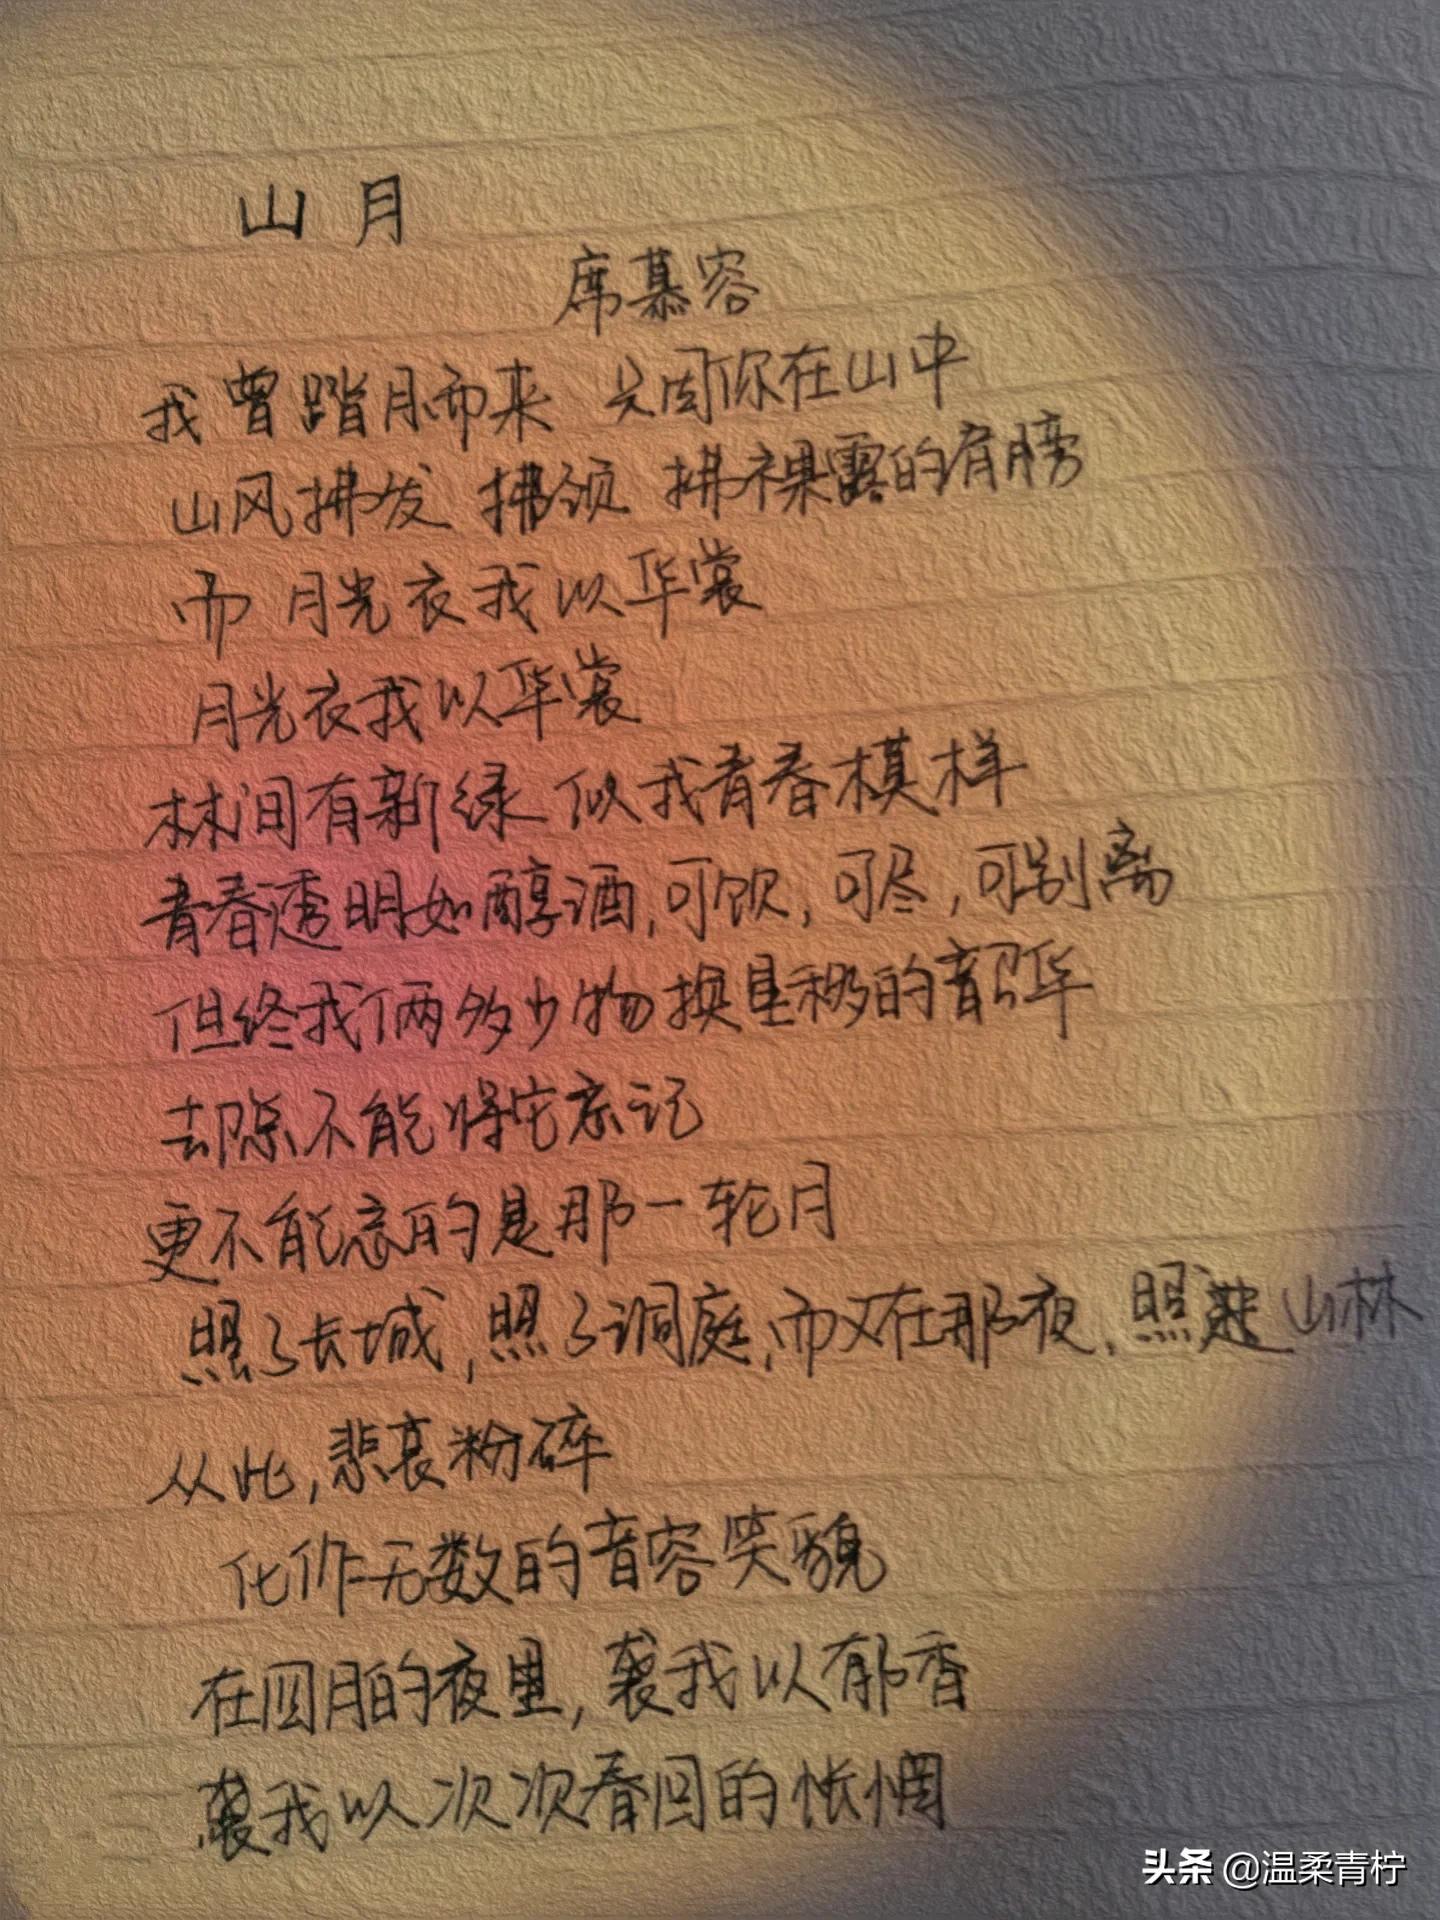 山月
席慕容
我曾踏月而来 只因你在山中
山风拂发 拂颈 拂裸露的肩膀
而月光衣我以华裳
月光衣我以华裳
林间有新绿 似我青春模样
青春透明如醇酒,可饮,可尽,可别离
但终我俩多少物换星移的韶华
去除不能将它忘记
更不能忘的是那一轮月
照了长城,照了洞庭,而又在那夜,照进山林
从此,悲哀粉碎
化作无数的音容笑貌
在四月的夜里,袭我以郁香
袭我以次次春回的怅惘
头条 @温柔青柠